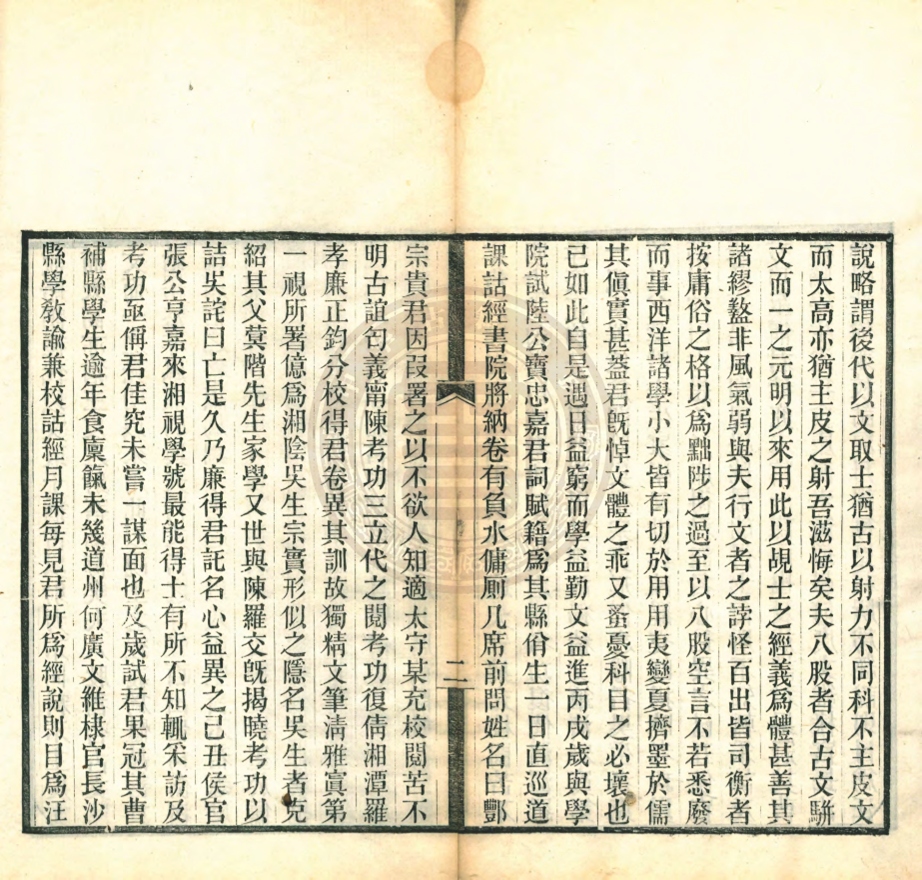 說略謂後代以文取士猶古以射力不同科不主皮文
而太高亦猶主皮之射吾滋悔矣夫八股者合古文駢
文而一之元明以來用此以覘士之經義爲體甚善其
諸繆盭非風氣弱與夫行文者之誖怪百出皆司衡者
按庸俗之格以爲黜陟之過至以八股空言不若悉廢
而事西洋諸學小大皆有切於用用夷變夏擠墨於儒
其傎實甚蓋君旣悼文體之乖又蚤憂科目之必壞也
已如此自是遇日益窮而學益勤文益進丙戌歲與學
院試陸公寶忠嘉君詞賦籍爲其縣佾生一日直巡道
課詁經書院將納卷有負水傭厠几席前問姓名曰酆
宗貴君因叚署之以不欲人知適太守某充校閱苦不
明古誼匄義甯陳考功三立代之閱考功復倩湘潭羅
孝廉正鈞分校得君卷異其訓故獨精文筆淸雅寘第
一視所署億爲湘陰吳生宗實形似之隱名吳生者克
紹其父蓂階先生家學又世與陳羅交旣揭曉考功以
詰吳詫曰亡是久乃廉得君託名心益異之己丑侯官
張公亨嘉來湘視學號最能得士有所不知輒采訪及
考功亟偁君佳究未嘗一謀面也及歲試君果冠其曹
補縣學生逾年食廩餼未幾道州何廣文維棣官長沙
縣學敎諭兼校詁經月課每見君所爲經說則目爲汪
二